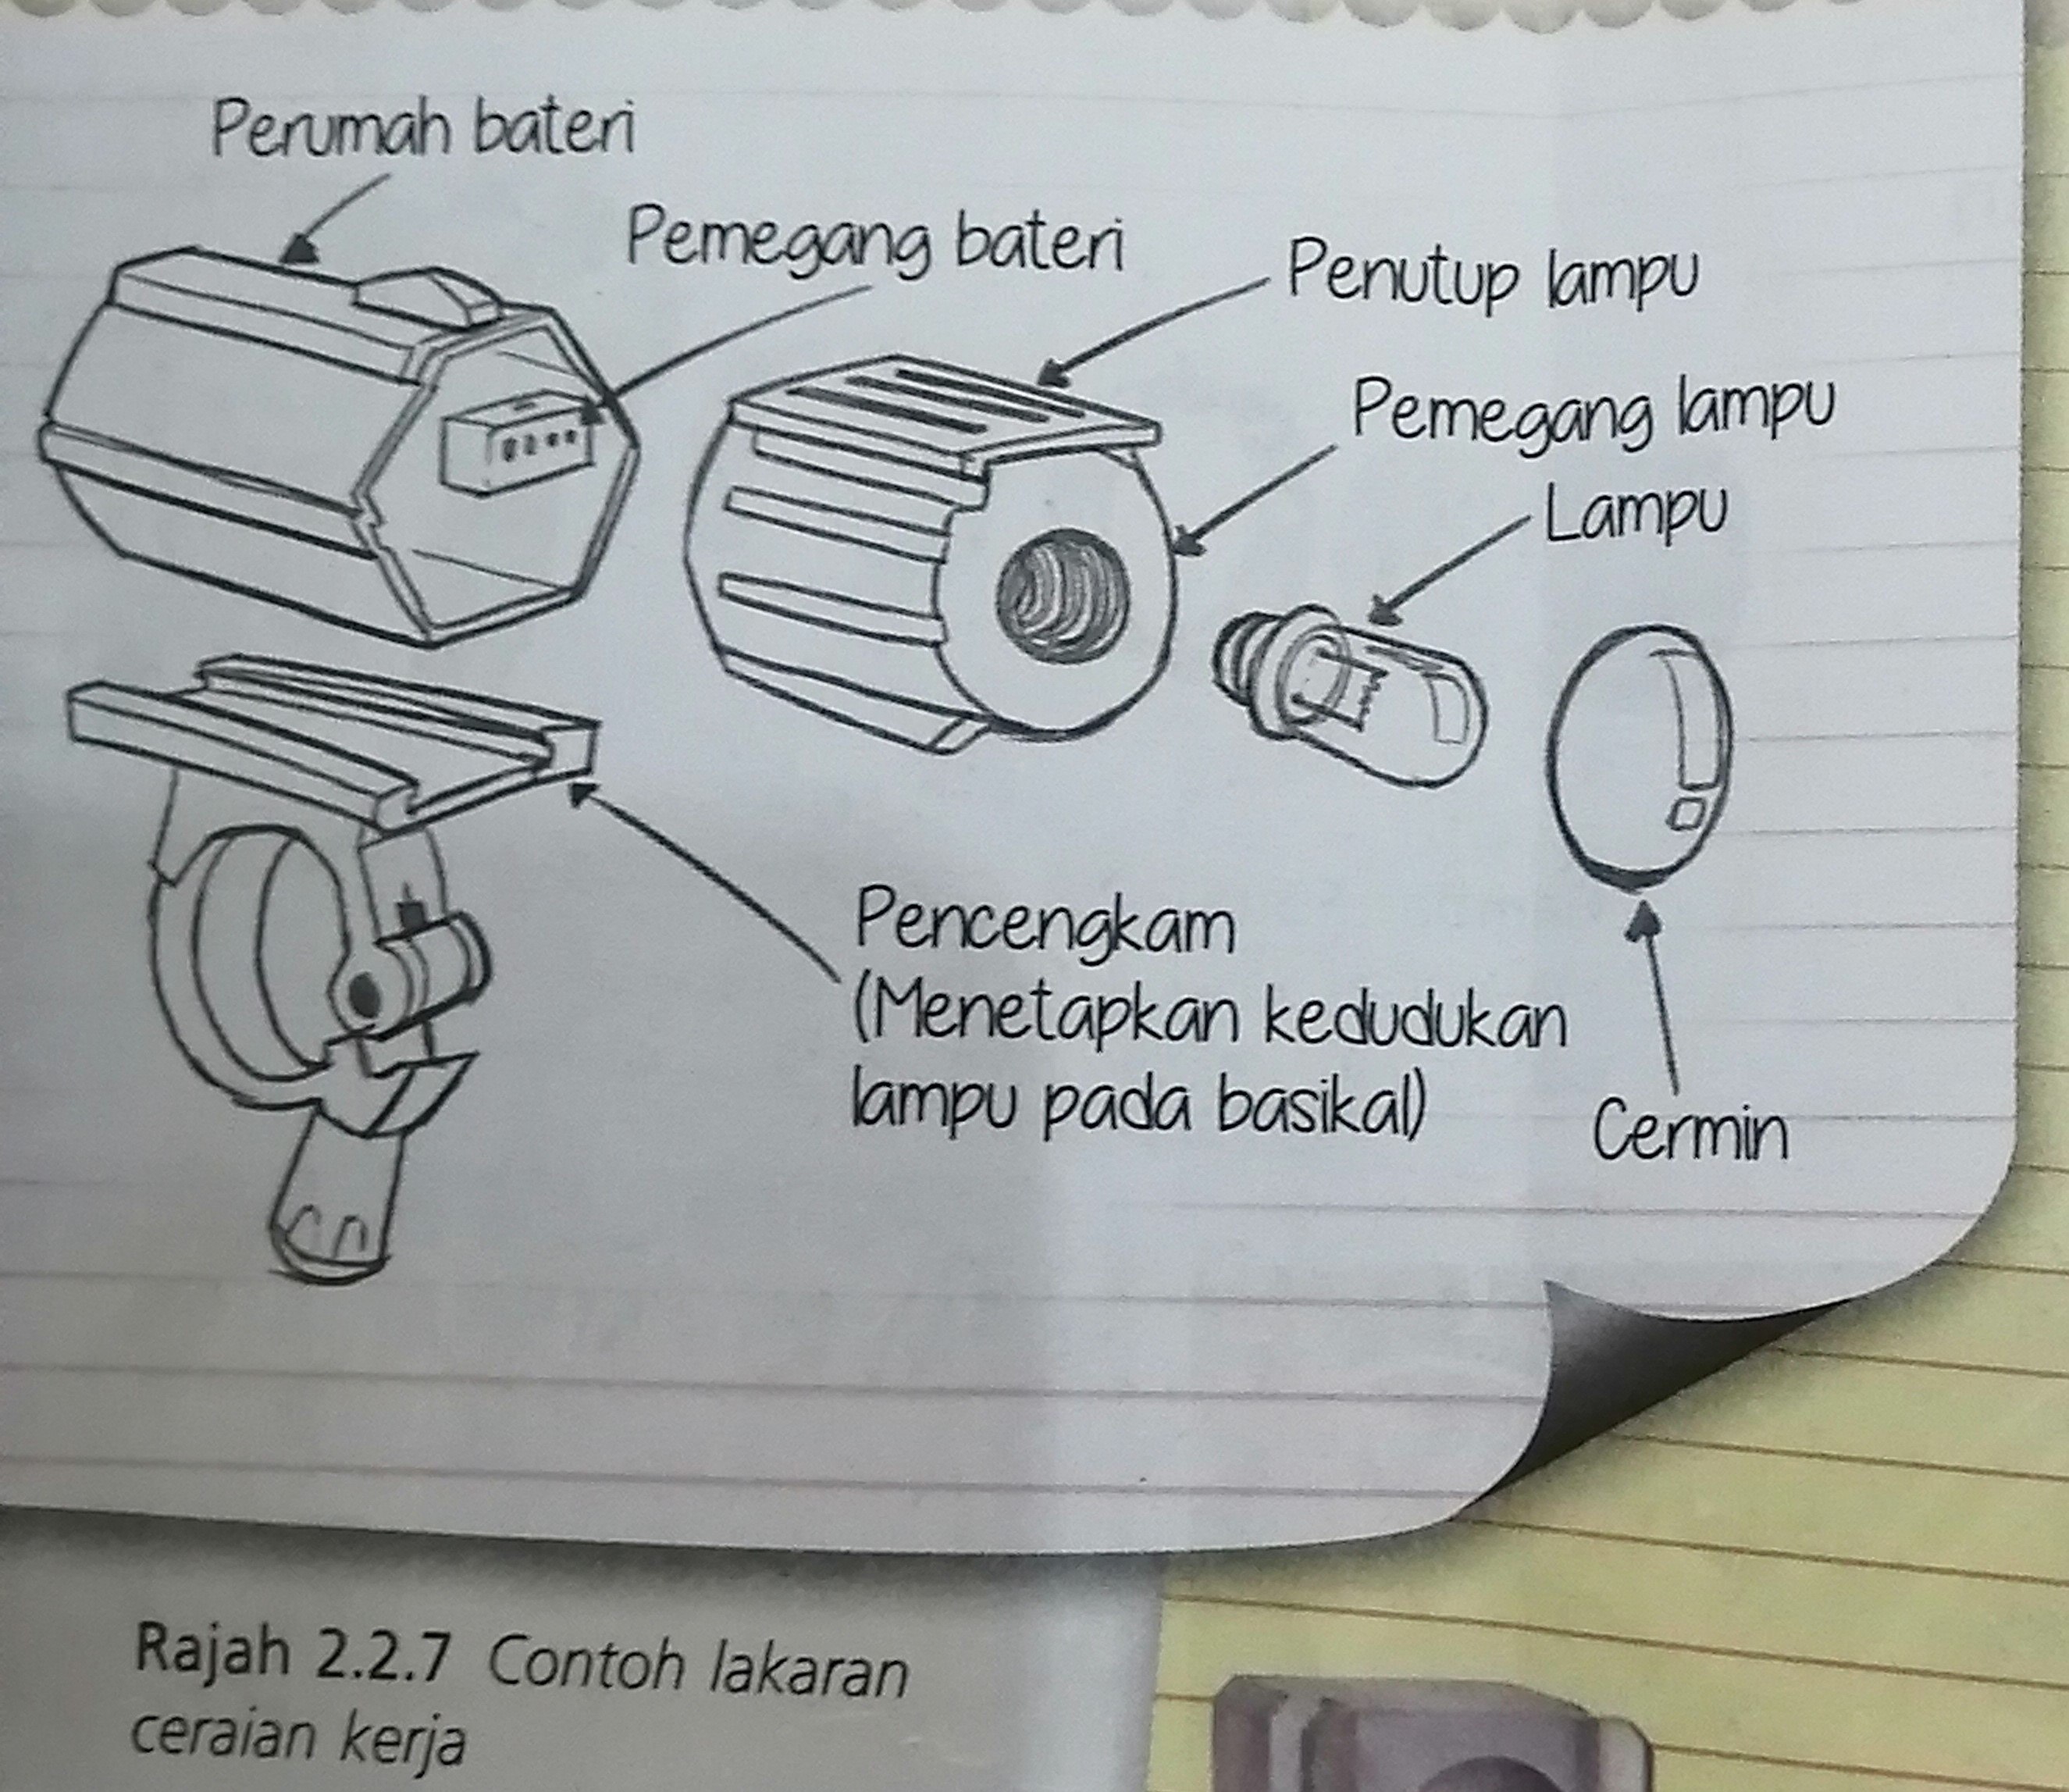 Perumah bateri
Pemegang bateri
Penutup lampu
Pemegang lampu
Lampu
Pencengkam
(Menetapkan kedudukan
lampu pada basikal)
Cermin
Rajah 2.2.7 Contoh lakaran
ceraian kerja